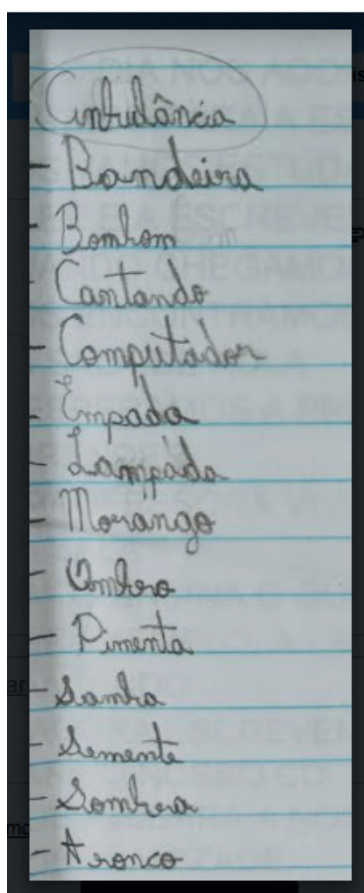 - Bandeira
- Bombom
- Cantando
- Computador
- Empada
- Lampáda
- Morango
- Ombro
- Pimenta
- Samba
- Semente
- Sombra
- Tronco